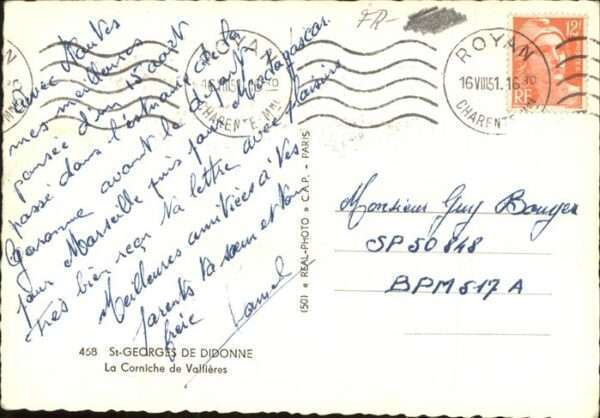 FR-
avec toutes
mes meilleures
pensées d'un 15 août
passé dans l'estuaire de la
Garonne avant le départ
pour Marseille puis pour Madagascar.
Très bien reçu ta lettre avec plaisir
Meilleures amitiées à tes
parents ta sœur et ton
frère
ROYAN
16 VIII 51
CHARENTE-MME
12F
RF
ROYAN
16 VIII 51. 16 30
CHARENTE-MME
(50) REAL-PHOTO C.A.P. - PARIS
Monsieur Guy Bouyer
SP 50 848
BPM 517 A
458 St-GEORGES DE DIDONNE
La Corniche de Vallières